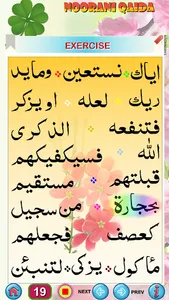 NOORANI QAIDA
EXERCISE
اياك نستعين ومايد
ريك لعله اويزكر
فتنفعه الذكرى
الله فسيكفيكهم
قبلتهم مستقيم
بحجارة من سجيل
كعصف فجعلهم
مأكول يزكى لتنبئن
19 NEXT PREV